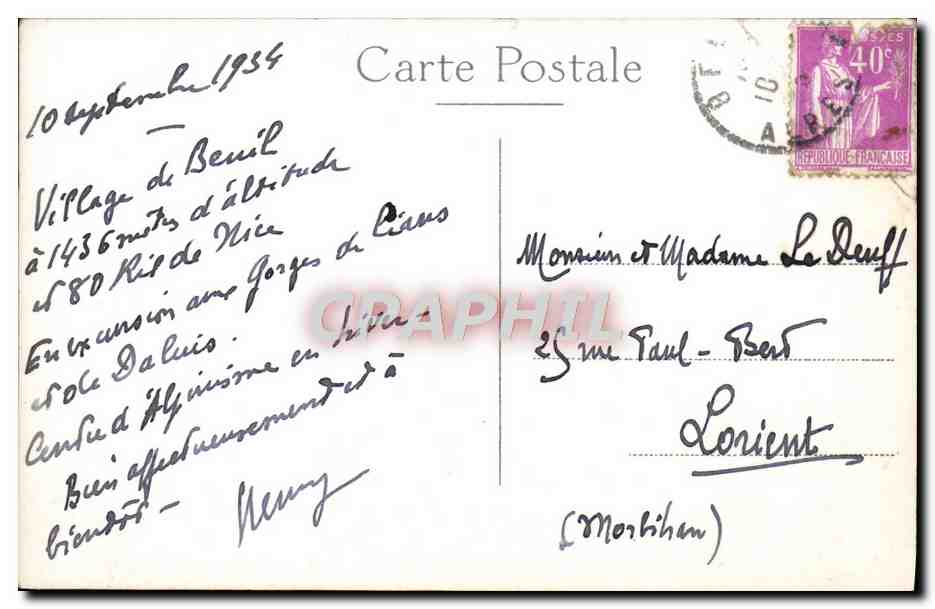 Carte Postale
10 septembre 1934
Village de Beuil
à 1436 mètres d'altitude
et 80 Kil de Nice
En excursion aux Gorges de Cians
et de Daluis.
Centre d'Alpinisme en hiver-
Bien affectueusement et à
bientôt -
Henry
Monsieur et Madame Le Deuff
25 rue Paul-Bert
Lorient
(Morbihan)
POSTES
40c
REPUBLIQUE FRANÇAISE
10
ALPES
CRAPHIL